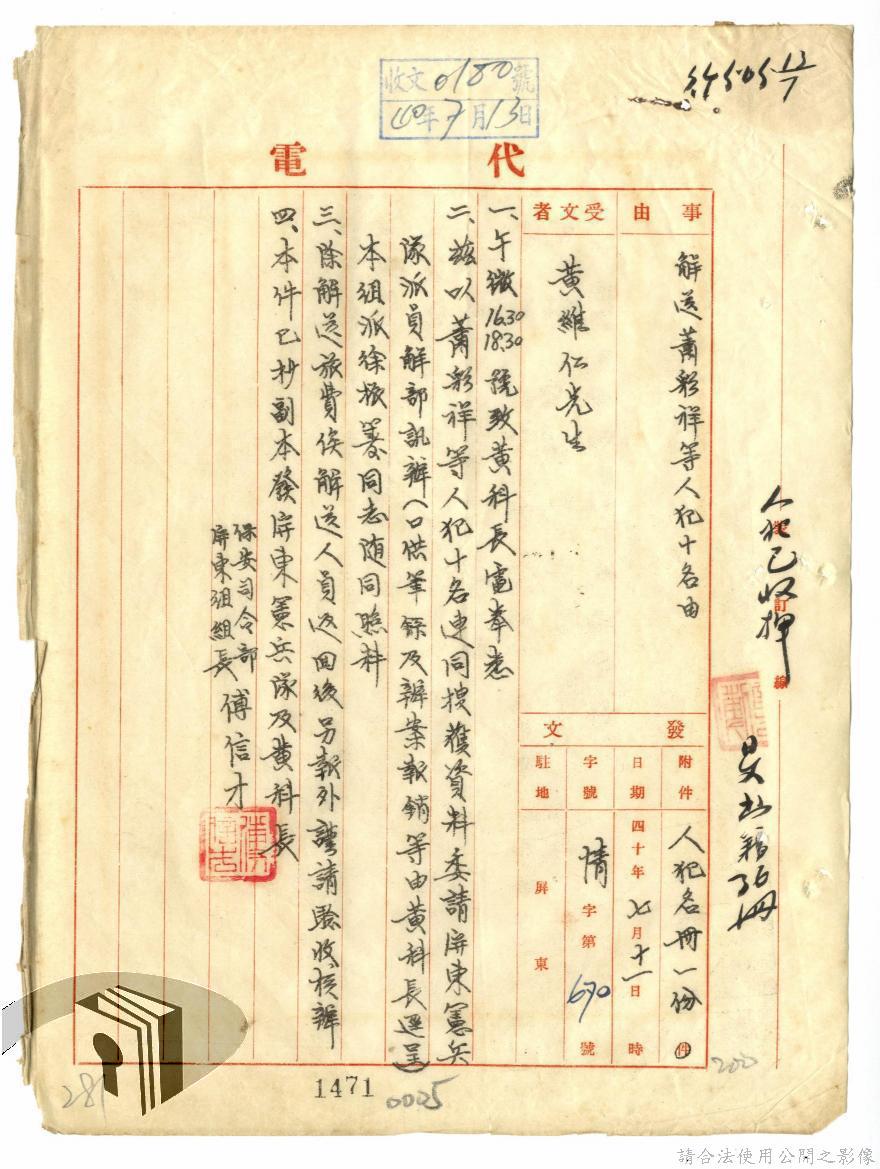 收文0180號
40年7月13日
徐505 13/7
代電
事由
解送蕭彩祥等人犯十名由
受文者
黃維仁先生
發文
附件
人犯名冊一份
日期
四十年七月十一日
時
字號
情字第670號
駐地
屏東
一、午微16.30 18.30號致黃科長電奉悉
二、茲以蕭彩祥等人犯十名連同搜獲資料委請屏東憲兵
隊派員解部訊辦(口供筆錄及辦案報銷等由黃科長逕呈)
本組派徐振等同志隨同照料
三、除解送旅費俟解送人員返回後另報外謹請驗收核辦
四、本件已抄副本發屏東憲兵隊及黃科長
保安司令部
屏東組組長 傅信才
人犯已收押
訂
線
281
1471
0025
200
請合法使用公開之影像